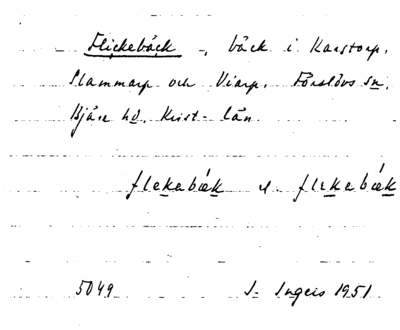 Flickebäck -, bäck i Karstorp.
Slammarp och Viarp. Förslövs sn.
Bjäre hd. Krist- län.
flekabäk el. flekabäk
5049 S- Ingers 1951